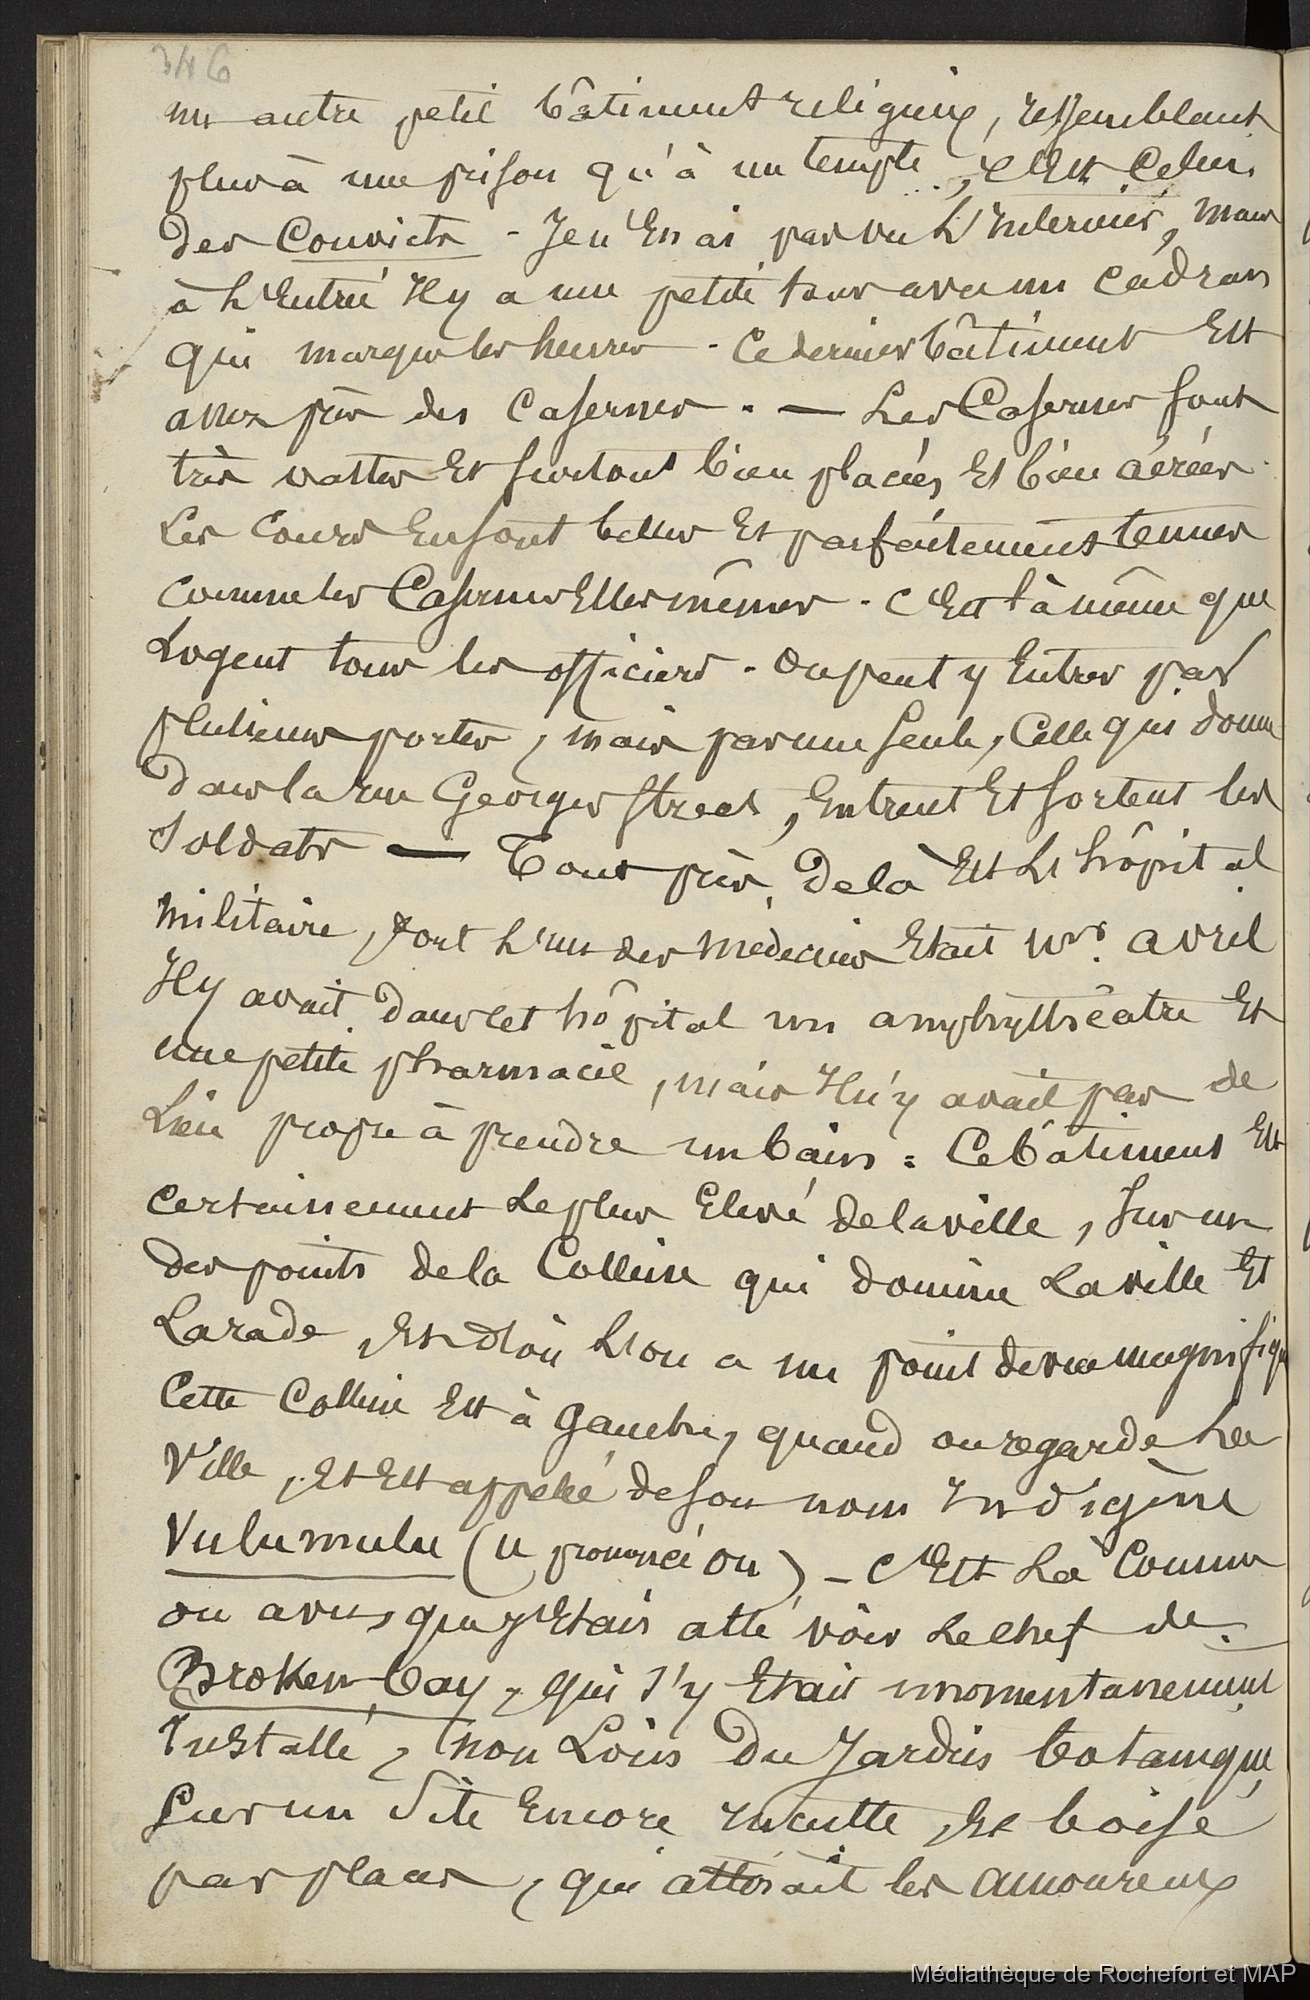 346
un autre petit bâtiment religieux, ressemblant
plus à une prison qu'à un temple, c'est celui
des Convicts - Je n'en ai pas vu L'Interieur, mais
à L'Entrée Il y a une petite tour avec un cadran
qui marque les heures - Ce dernier bâtiment Est
assez près des Casernes. — Les Casernes sont
très vastes Et surtout bien placées Et bien aérées.
Les Cours En sont belles Et parfaitement tenues
comme les Casernes Elles mêmes. C'Est là même que
Logent tous les officiers. On peut y Entrer par
plusieurs portes, mais par une seule, Celle qui donne
dans la rue Georges Street, Entrent Et sortent les
Soldats — Tout près de là Est L'hôpital
militaire, dont L'un des Médecins Etait Mr. Avril
Il y avait dans cet hôpital un amphythéatre Et
une petite pharmacie, mais Il n'y avait pas de
Lieu propre à prendre un bain = Ce bâtiment Est
certainement Le plus Elevé de la ville, Sur un
des points de la Colline qui domine La ville Et
La rade, Et d'où L'on a un point de vue magnifique
Cette Colline Est à gauche, quand on regarde La
Ville, Et Est appelée de son nom Indigène
Vulumulu (u prononcé ou) - C'Est Là Comme
on a vu, que j'Etais allé voir Le chef de
Broken-bay, qui s'y Etait momentanement
Installé, non Loin Du Jardin botanique,
Sur un Site Encore Inculte, Et boisé
par places, qui attirait les amoureux
Médiathèque de Rochefort et MAP